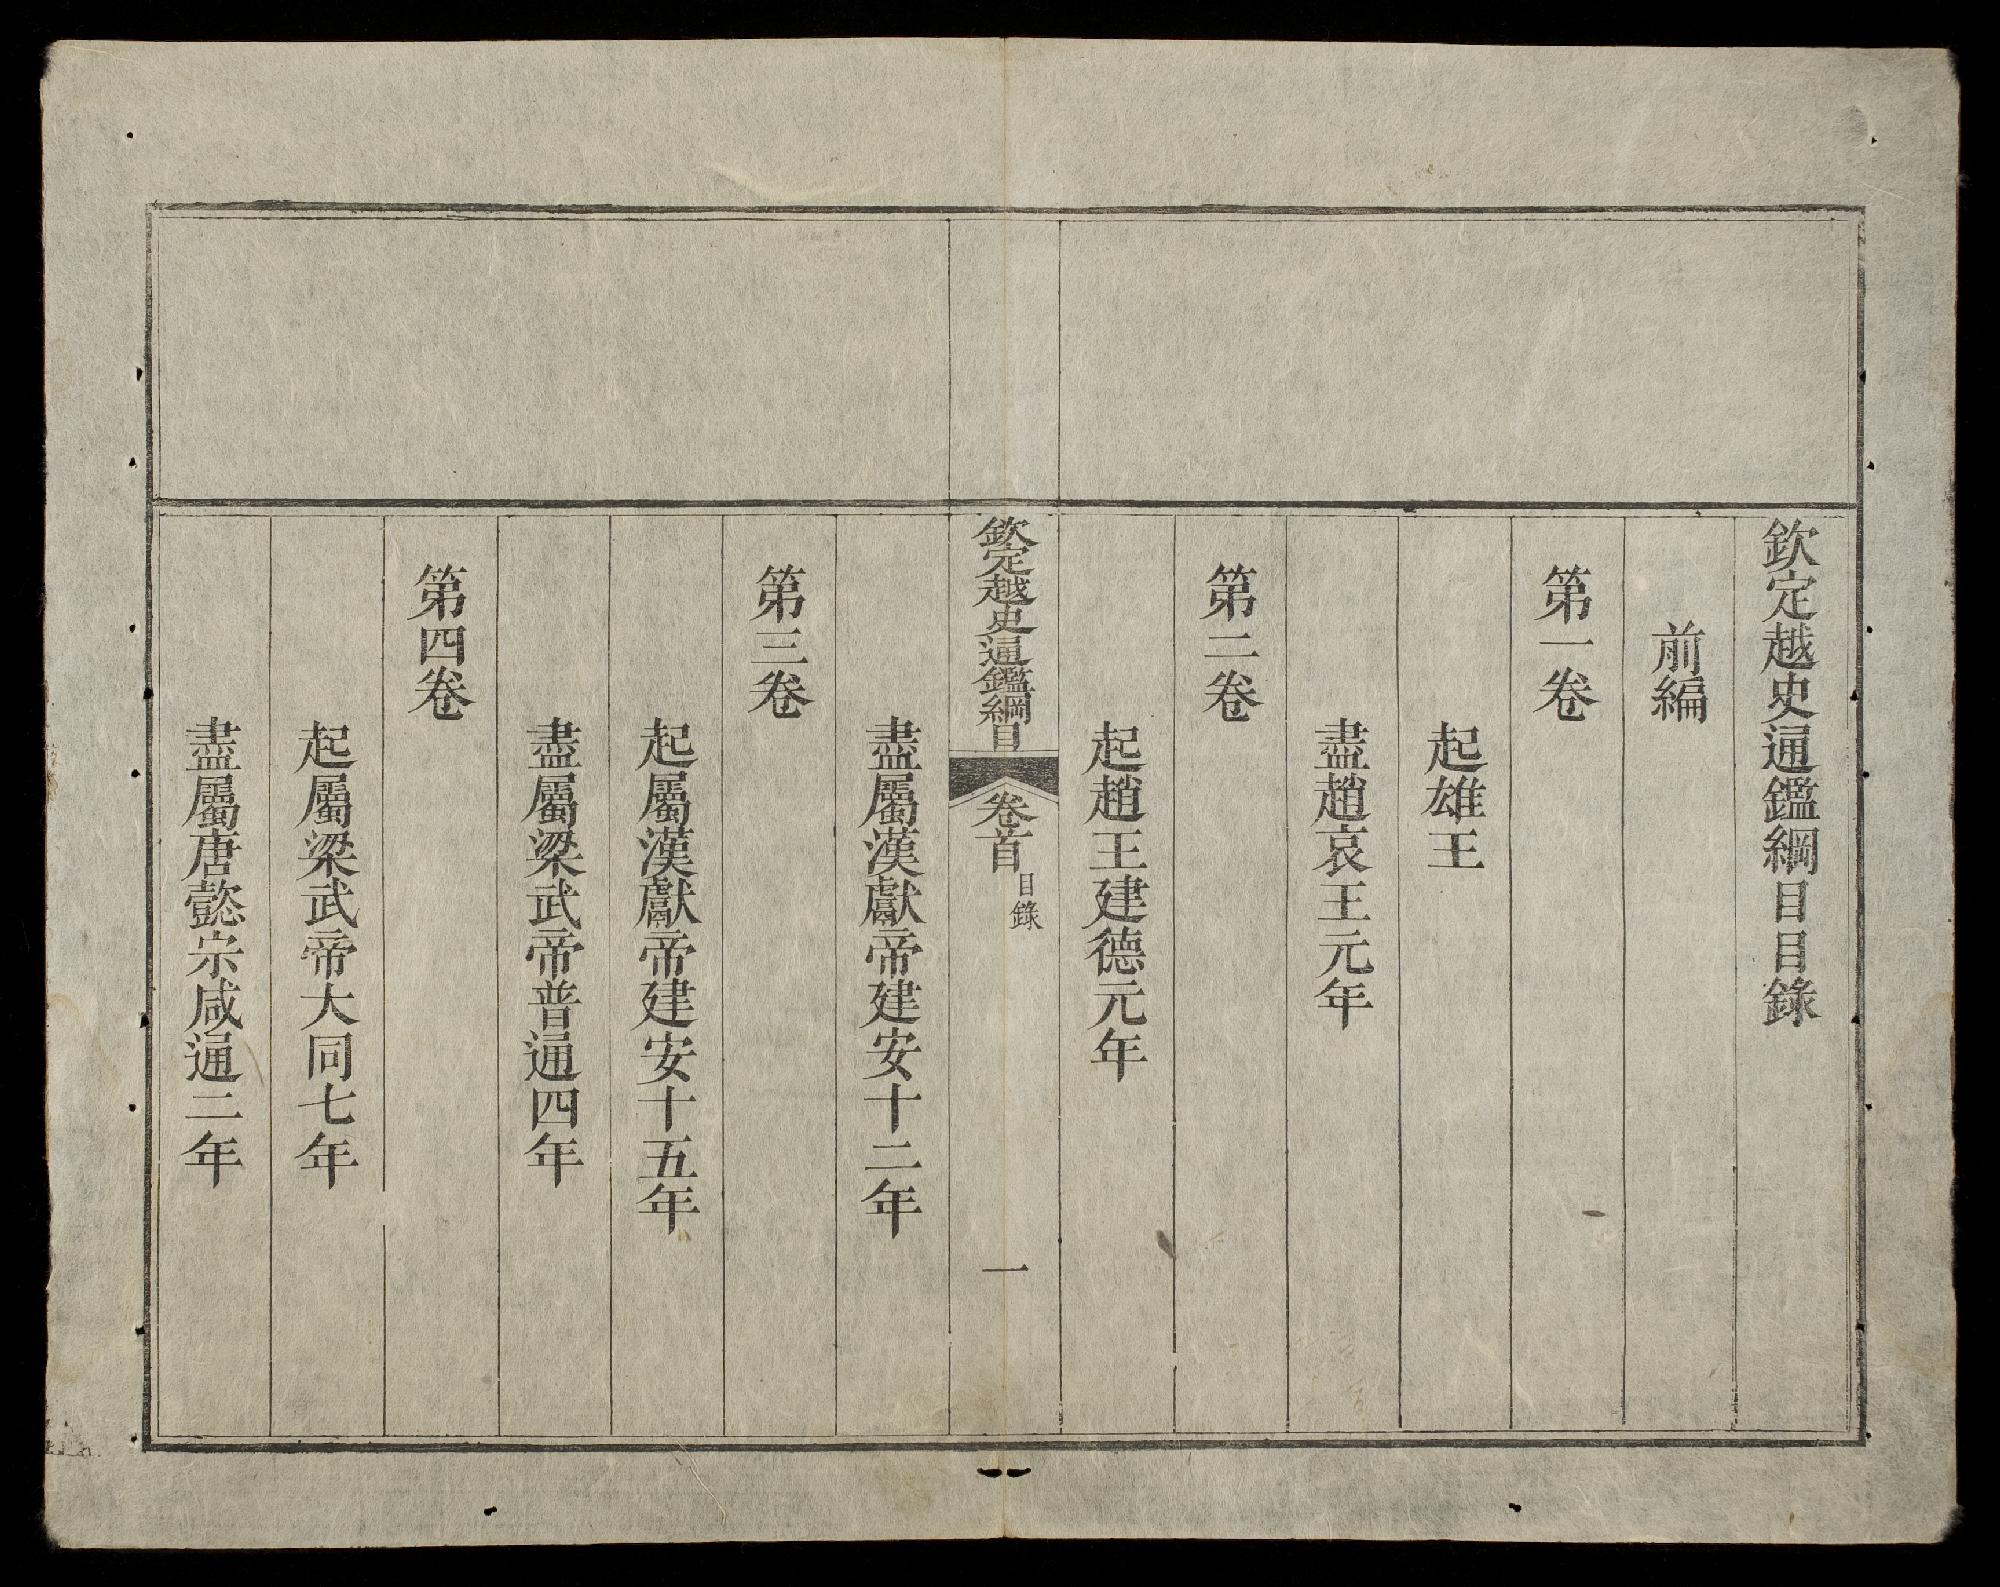 欽定越史通鑑綱目目錄
前編
第一卷
起雄王
盡趙哀王元年
第二卷
起趙王建德元年
欽定越史通鑑綱目
卷首
目錄
一
盡屬漢獻帝建安十二年
第三卷
起屬漢獻帝建安十五年
盡屬梁武帝普通四年
第四卷
起屬梁武帝大同七年
盡屬唐懿宗咸通二年